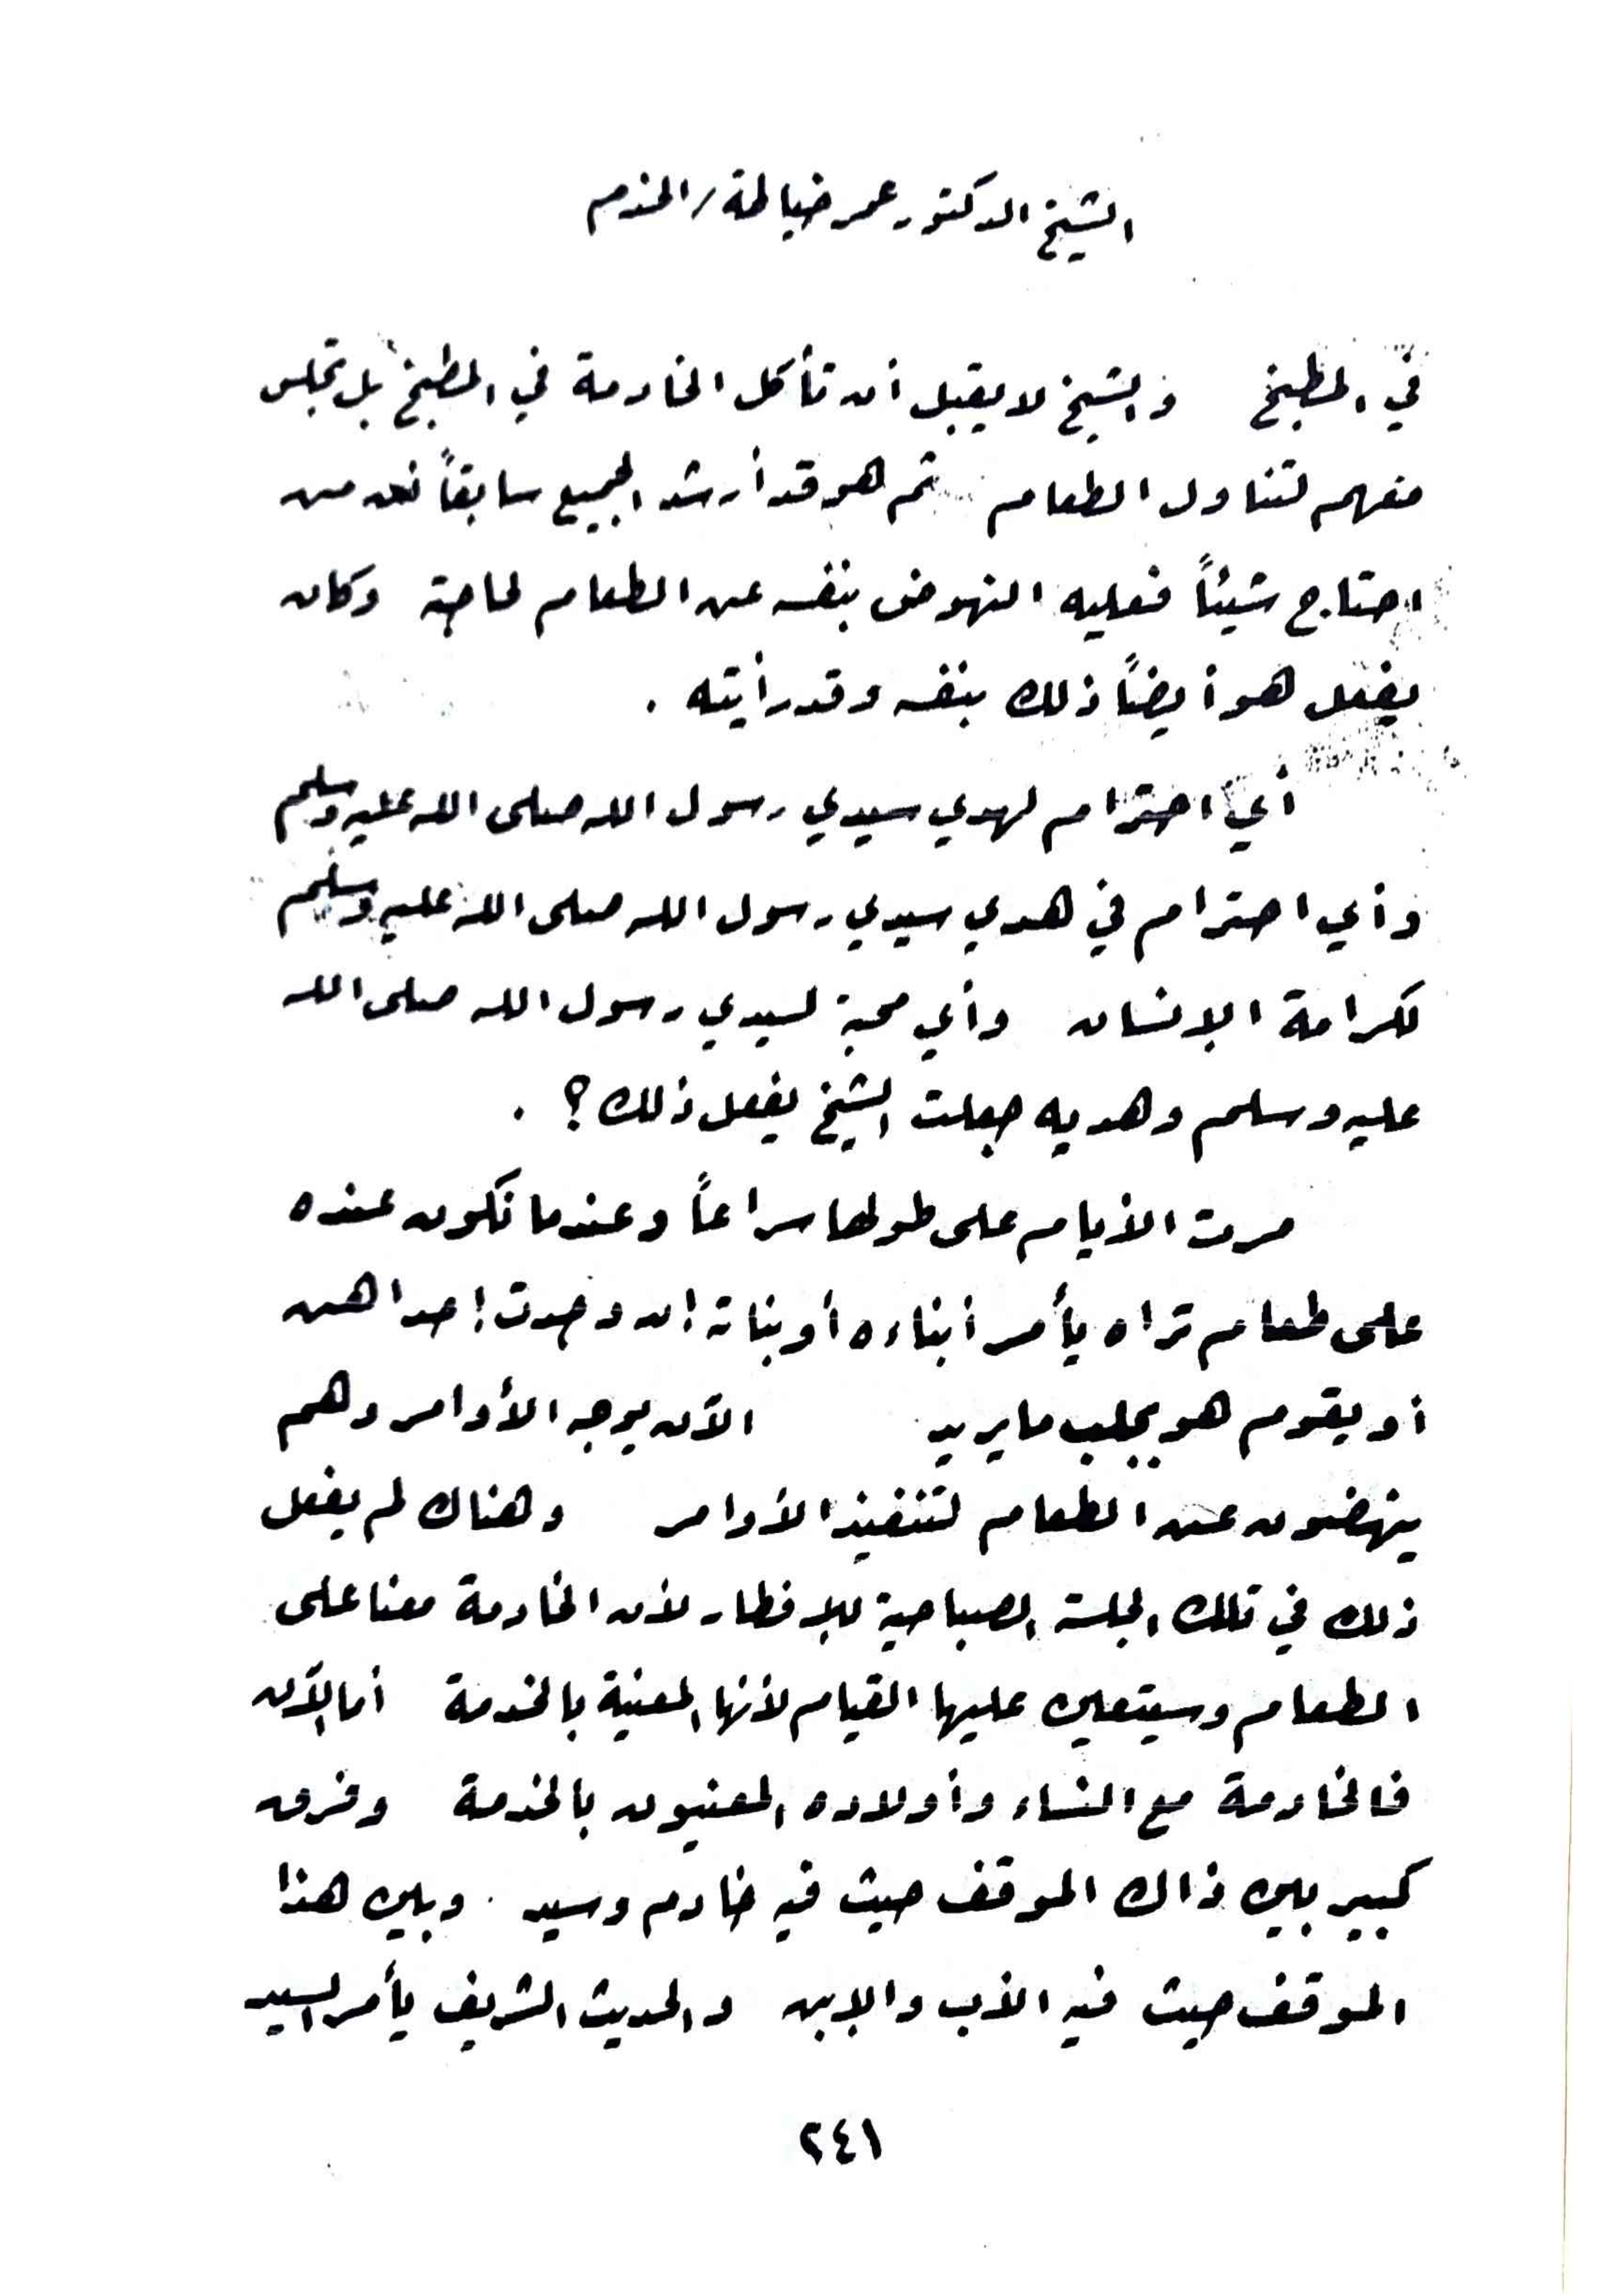 الشيخ الدكتور عمر خيالمة / المخدم
في المطبخ والشيخ لا يقبل أن تأكل الخادمة في المطبخ بل تجلس
معهم لتناول الطعام ثم هو قد أرشد الجميع سابقاً نحن من
احتاج شيئاً فعليه النهوض بنفسه عن الطعام لحاجته وكان
يفعل هو أيضاً ذلك بنفسه وقد رأيته .
أي احترام لهدي سيدي رسول الله صلى الله عليه وسلم
وأي احترام في هدي سيدي رسول الله صلى الله عليه وسلم
لكرامة الإنسان وأي محبة لسيدي رسول الله صلى الله
عليه وسلم وهديه جعلت الشيخ يفعل ذلك ؟ .
مرت الأيام على طولها سراعاً وعندما نكون عنده
على طعام تراه يأمر أبناءه أو بناته إن وجدت إحداهن
أو يقوم هو بجلب ما يريد الآن يوجه الأوامر وهم
ينهضون عن الطعام لتنفيذ الأوامر وهناك لم يفعل
ذلك في تلك الجلسة الصباحية للإفطار لأن الخادمة معنا على
الطعام وسيتعين عليها القيام لأنها المعنية بالخدمة أما الآن
فالخادمة مع النساء وأولاده المعنيون بالخدمة وفرق
كبير بين ذاك الموقف حيث فيه خادم وسيد . وبين هذا
الموقف حيث فيه الأب والابن والحديث الشريف يأمر السيد
٢٤١